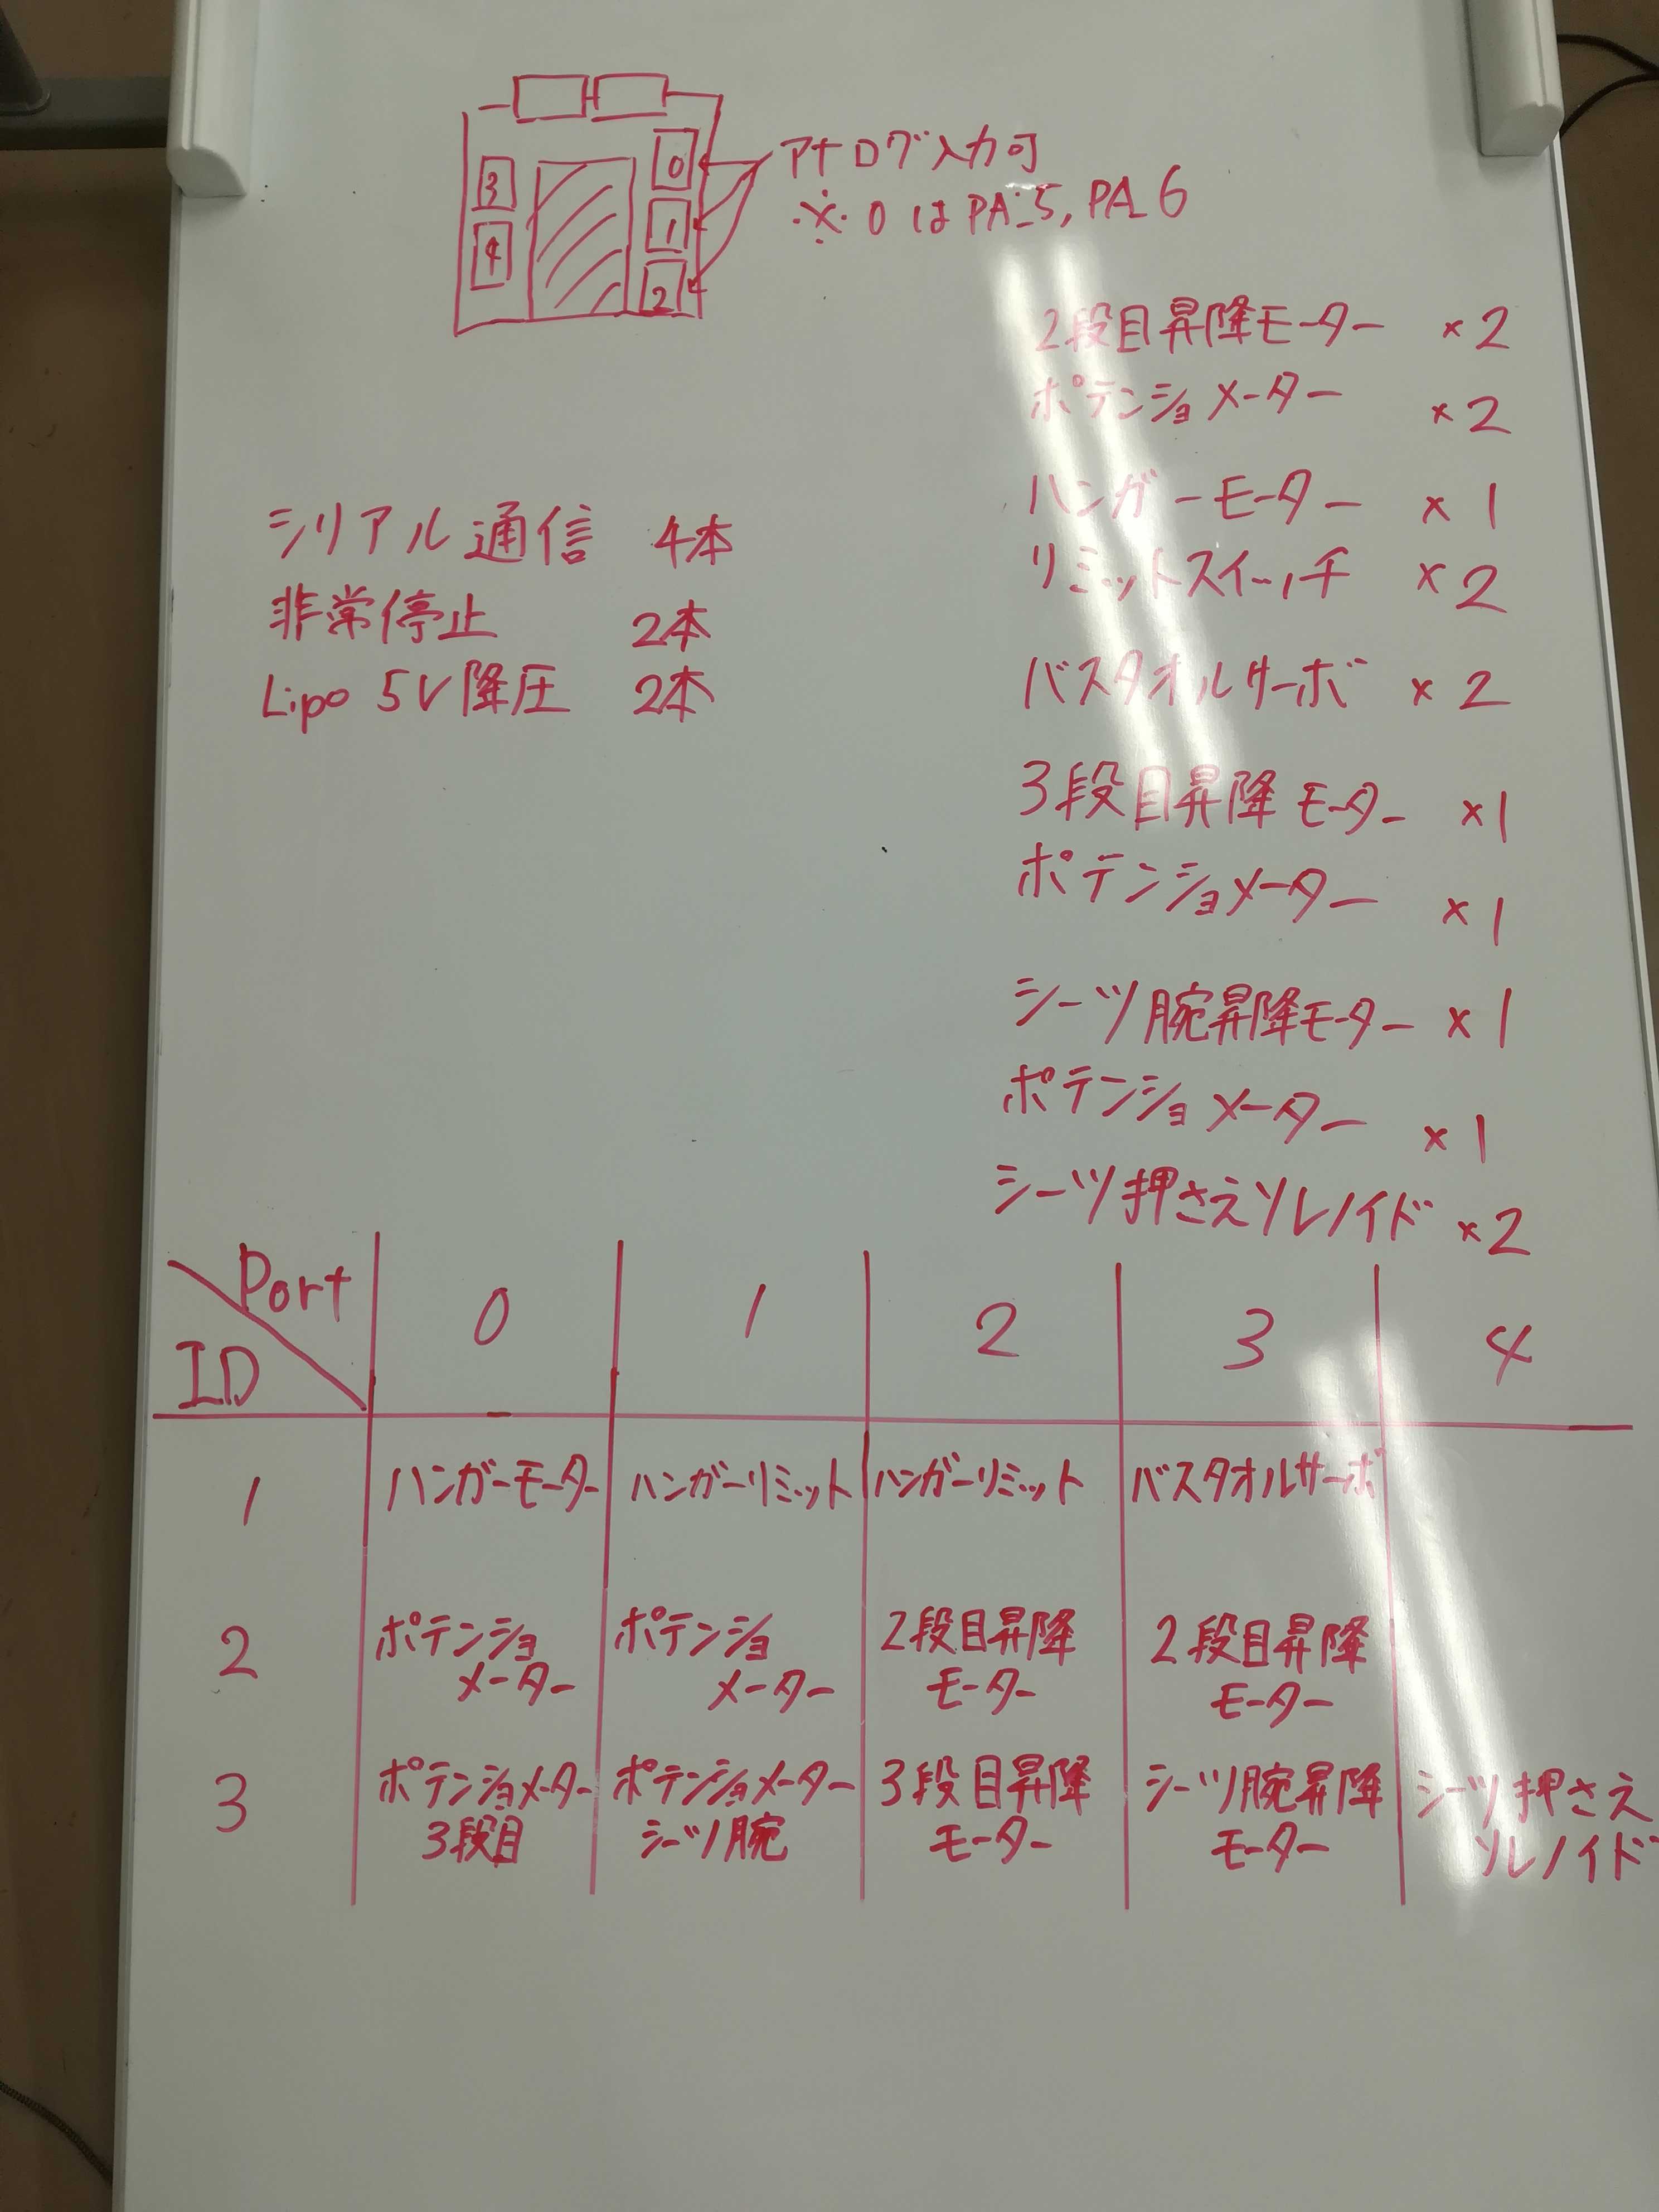 3
4
0
1
2
アナログ入力可
※ 0 は PA_5, PA_6
2段目昇降モーター ×2
ポテンショメーター ×2
ハンガーモーター ×1
リミットスイッチ ×2
バスタオルサーボ ×2
3段目昇降モーター ×1
ポテンショメーター ×1
シーツ腕昇降モーター ×1
ポテンショメーター ×1
シーツ押さえソレノイド ×2
シリアル通信 4本
非常停止 2本
Lipo 5V降圧 2本
Port
ID
0 1 2 3 4
1 ハンガーモーター ハンガーリミット ハンガーリミット バスタオルサーボ
2 ポテンショ ポテンショ 2段目昇降 2段目昇降
メーター メーター モーター モーター
3 ポテンショメーター ポテンショメーター 3段目昇降 シーツ腕昇降 シーツ押さえ
3段目 シーツ腕 モーター モーター ソレノイド